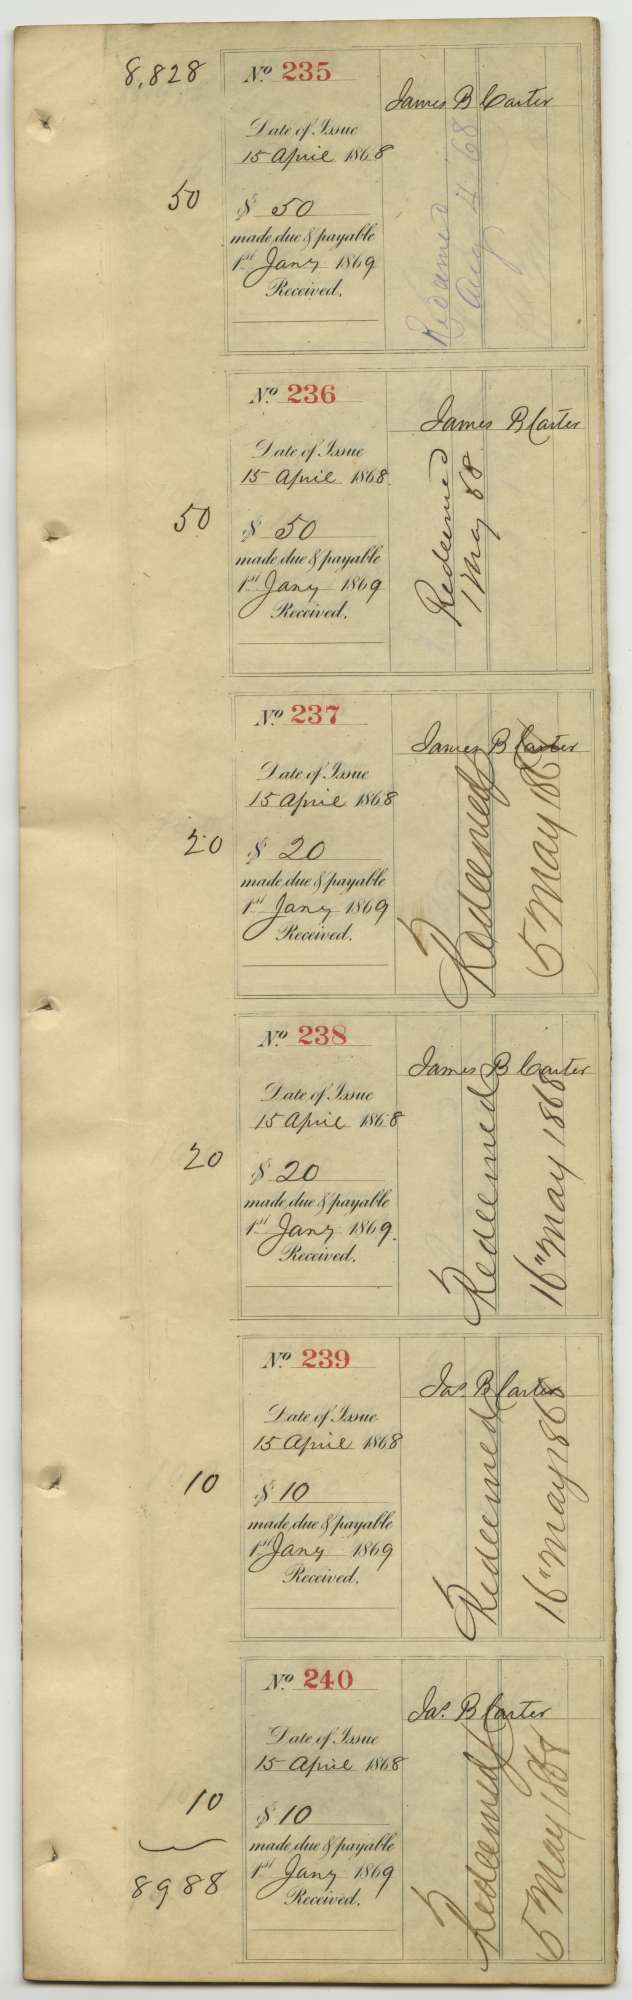 8,828
Nº 235
James B Carter
Date of Issue
15 April 1868
50
$ 50
made, due & payable
1st Jany 1869
Received,
Redamed
Aug 4 68
Nº 236
James B Carter
Date of Issue
15 April 1868
50
$ 50
made, due & payable
1st Jany 1869
Received,
Redeemed
1 May 68
Nº 237
James B Carter
Date of Issue
15 April 1868
20
$ 20
made, due & payable
1st Jany 1869
Received,
Redeemed
5 May 1868
Nº 238
James B Carter
Date of Issue
15 April 1868
20
$ 20
made, due & payable
1st Jany 1869.
Received,
Redeemed
16" May 1868
Nº 239
Jas. B Carter
Date of Issue
15 April 1868
10
$ 10
made, due & payable
1st Jany 1869
Received,
Redeemed
16" May 1868
Nº 240
Jas. B Carter
Date of Issue
15 April 1868
10
$ 10
made, due & payable
1st Jany 1869
Received,
Redeemed
5 May 1868
8988